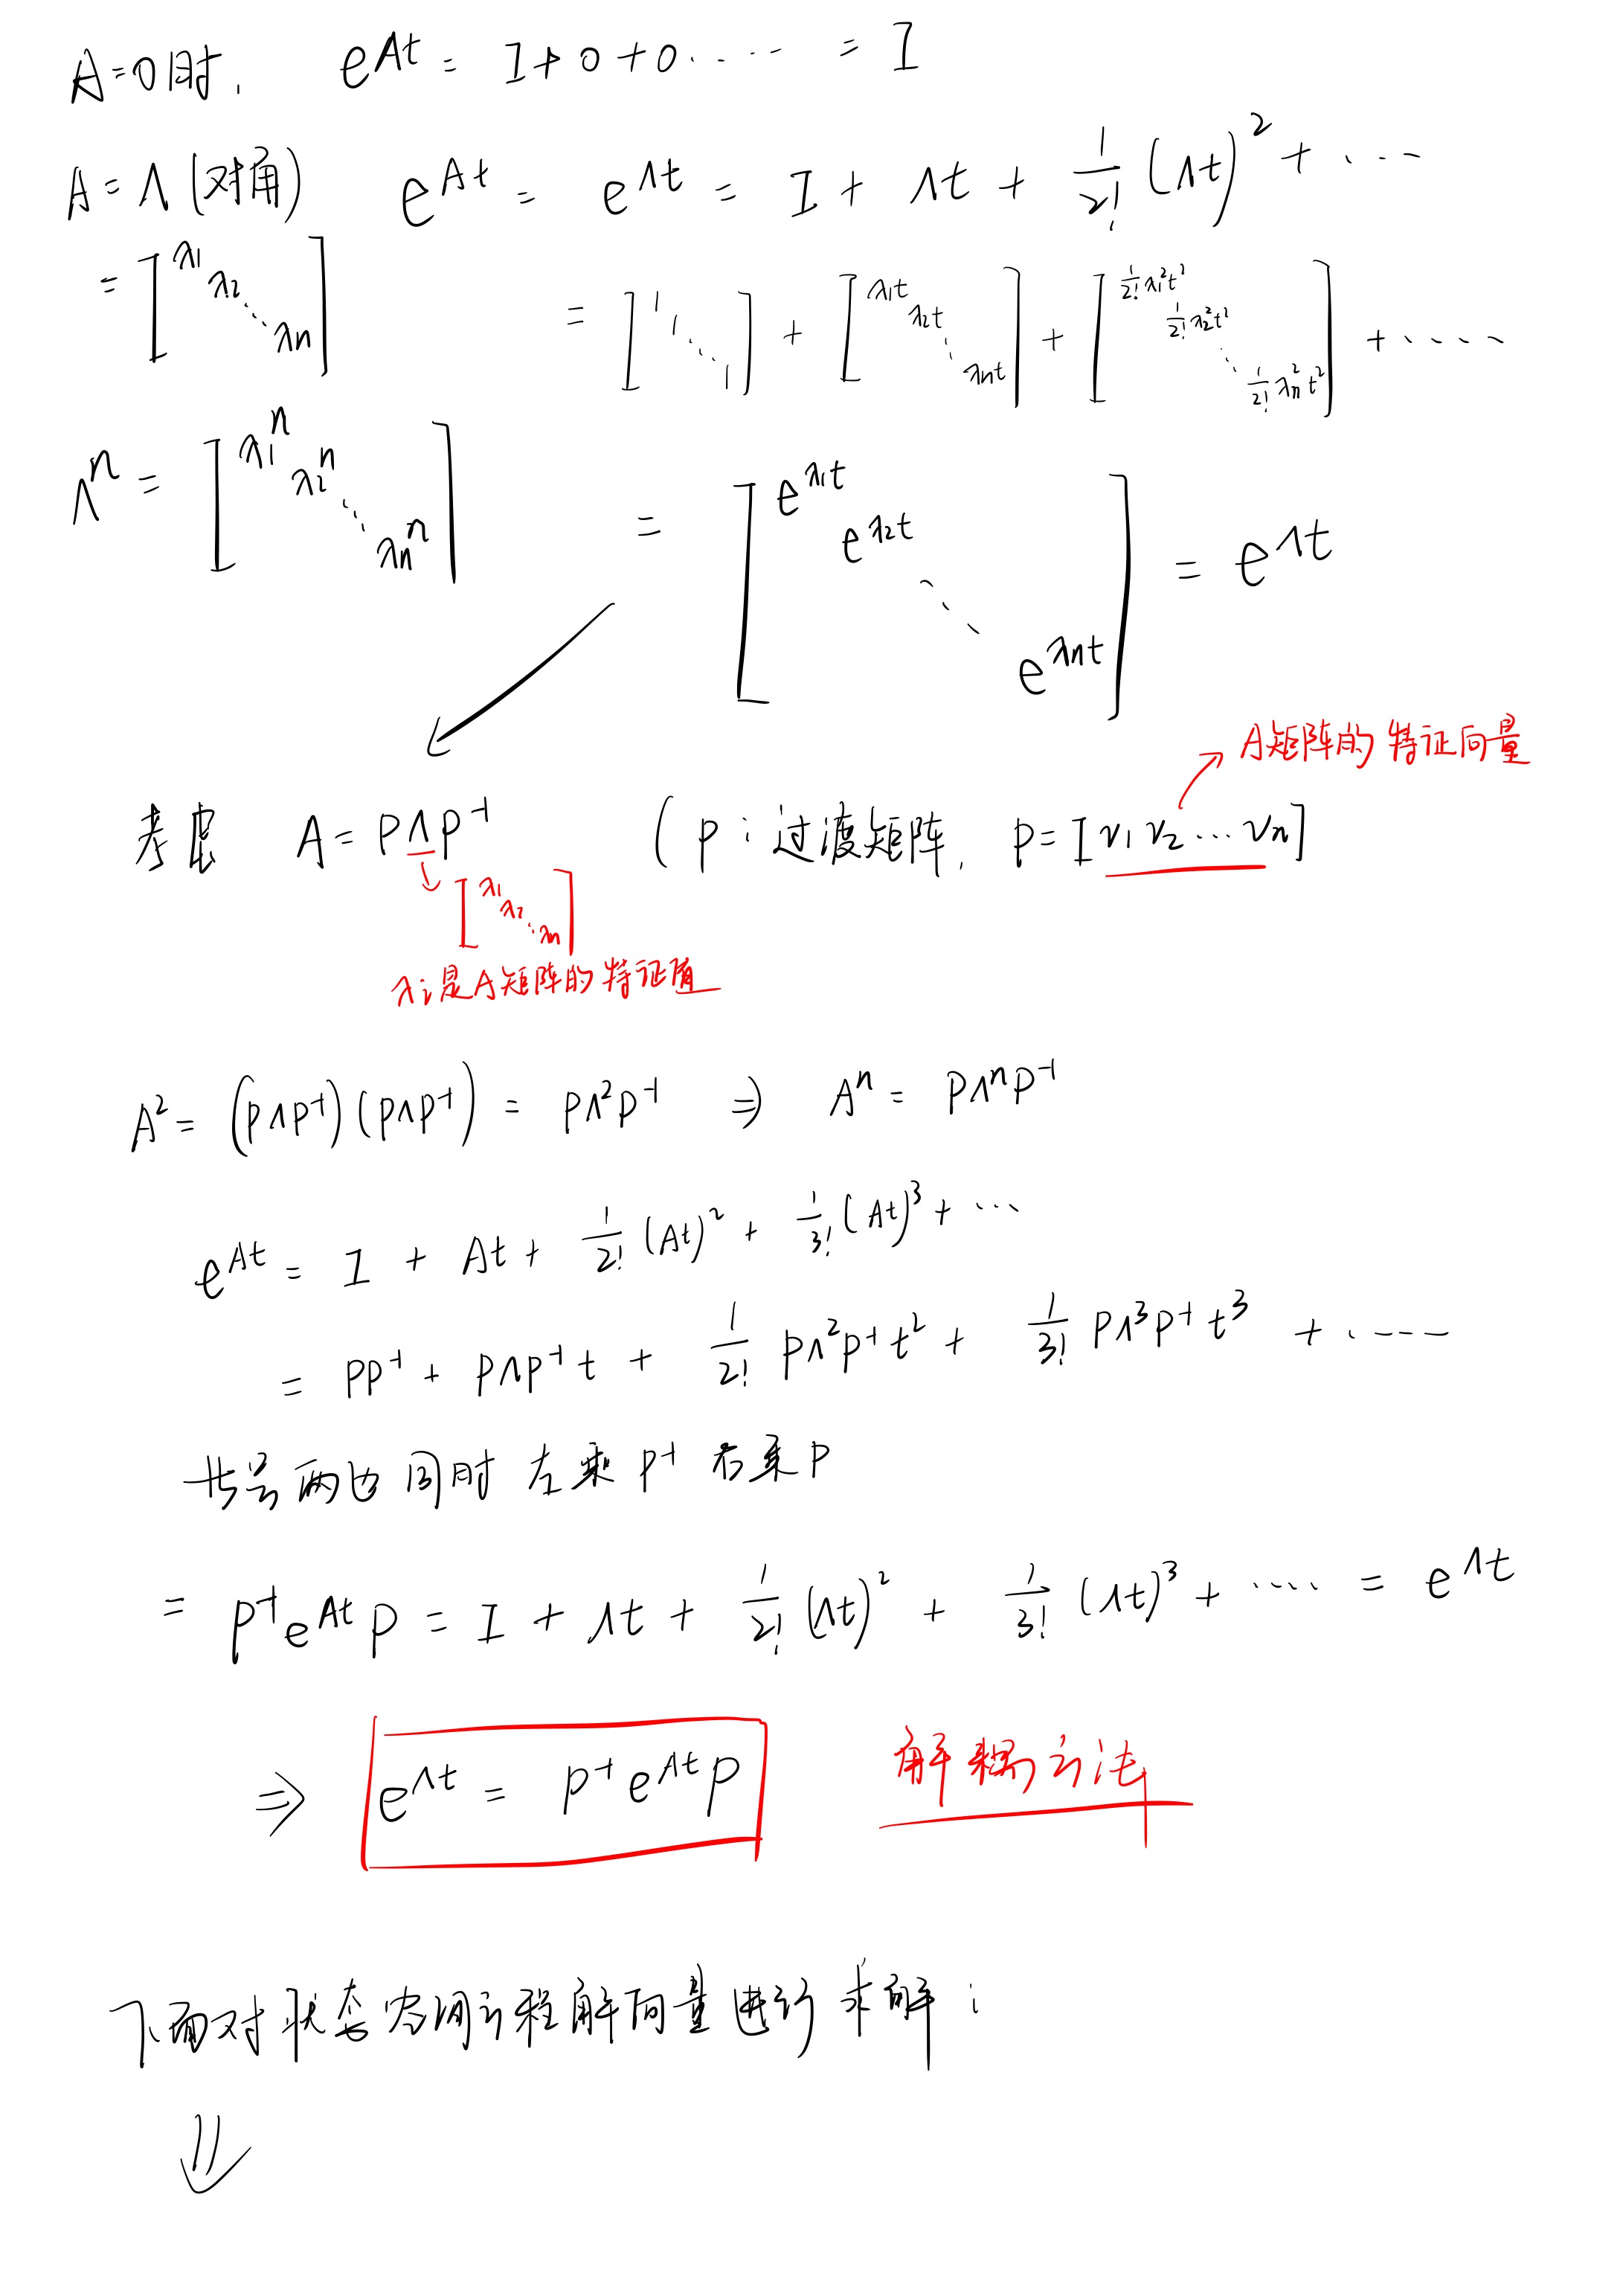 A=0时, e^{At} = I+0+0····· = I
A=Λ(对角) e^{At} = e^{Λt} = I + Λt + \frac{1}{2!}(Λt)^2 + ····
= [λ1 λ2 ⋱ λn] = [1 1 ⋱ 1] + [λ1t λ2t ⋱ λnt] + [\frac{1}{2!}λ1^2t^2 \frac{1}{2!}λ2^2t^2 ⋱ \frac{1}{2!}λn^2t^2] + ·····
Λ^n = [λ1^n λ2^n ⋱ λn^n] = [e^{λ1t} e^{λ2t} ⋱ e^{λnt}] = e^{Λt}
A矩阵的特征向量
考虑 A = PΛP^{-1} (P:过渡矩阵, P=[v1 v2 ··· vn]
[λ1 λ2 ⋱ λn]
λi是A矩阵的特征值
A^2 = (PΛP^{-1})(PΛP^{-1}) = PΛ^2P^{-1} ⇒ A^n = PΛ^nP^{-1}
e^{At} = I + At + \frac{1}{2!}(At)^2 + \frac{1}{3!}(At)^3 + ···
= PP^{-1} + PΛP^{-1}t + \frac{1}{2!}PΛ^2P^{-1}t^2 + \frac{1}{3!}PΛ^3P^{-1}t^3 + ·····
两边同时左乘P^{-1} 右乘P
= P^{-1}e^{At}P = I + Λt + \frac{1}{2!}(Λt)^2 + \frac{1}{3!}(Λt)^3 + ····· = e^{Λt}
⇒ e^{Λt} = P^{-1}e^{At}P 解耦方法
下面对状态空间方程解向量进行求解: